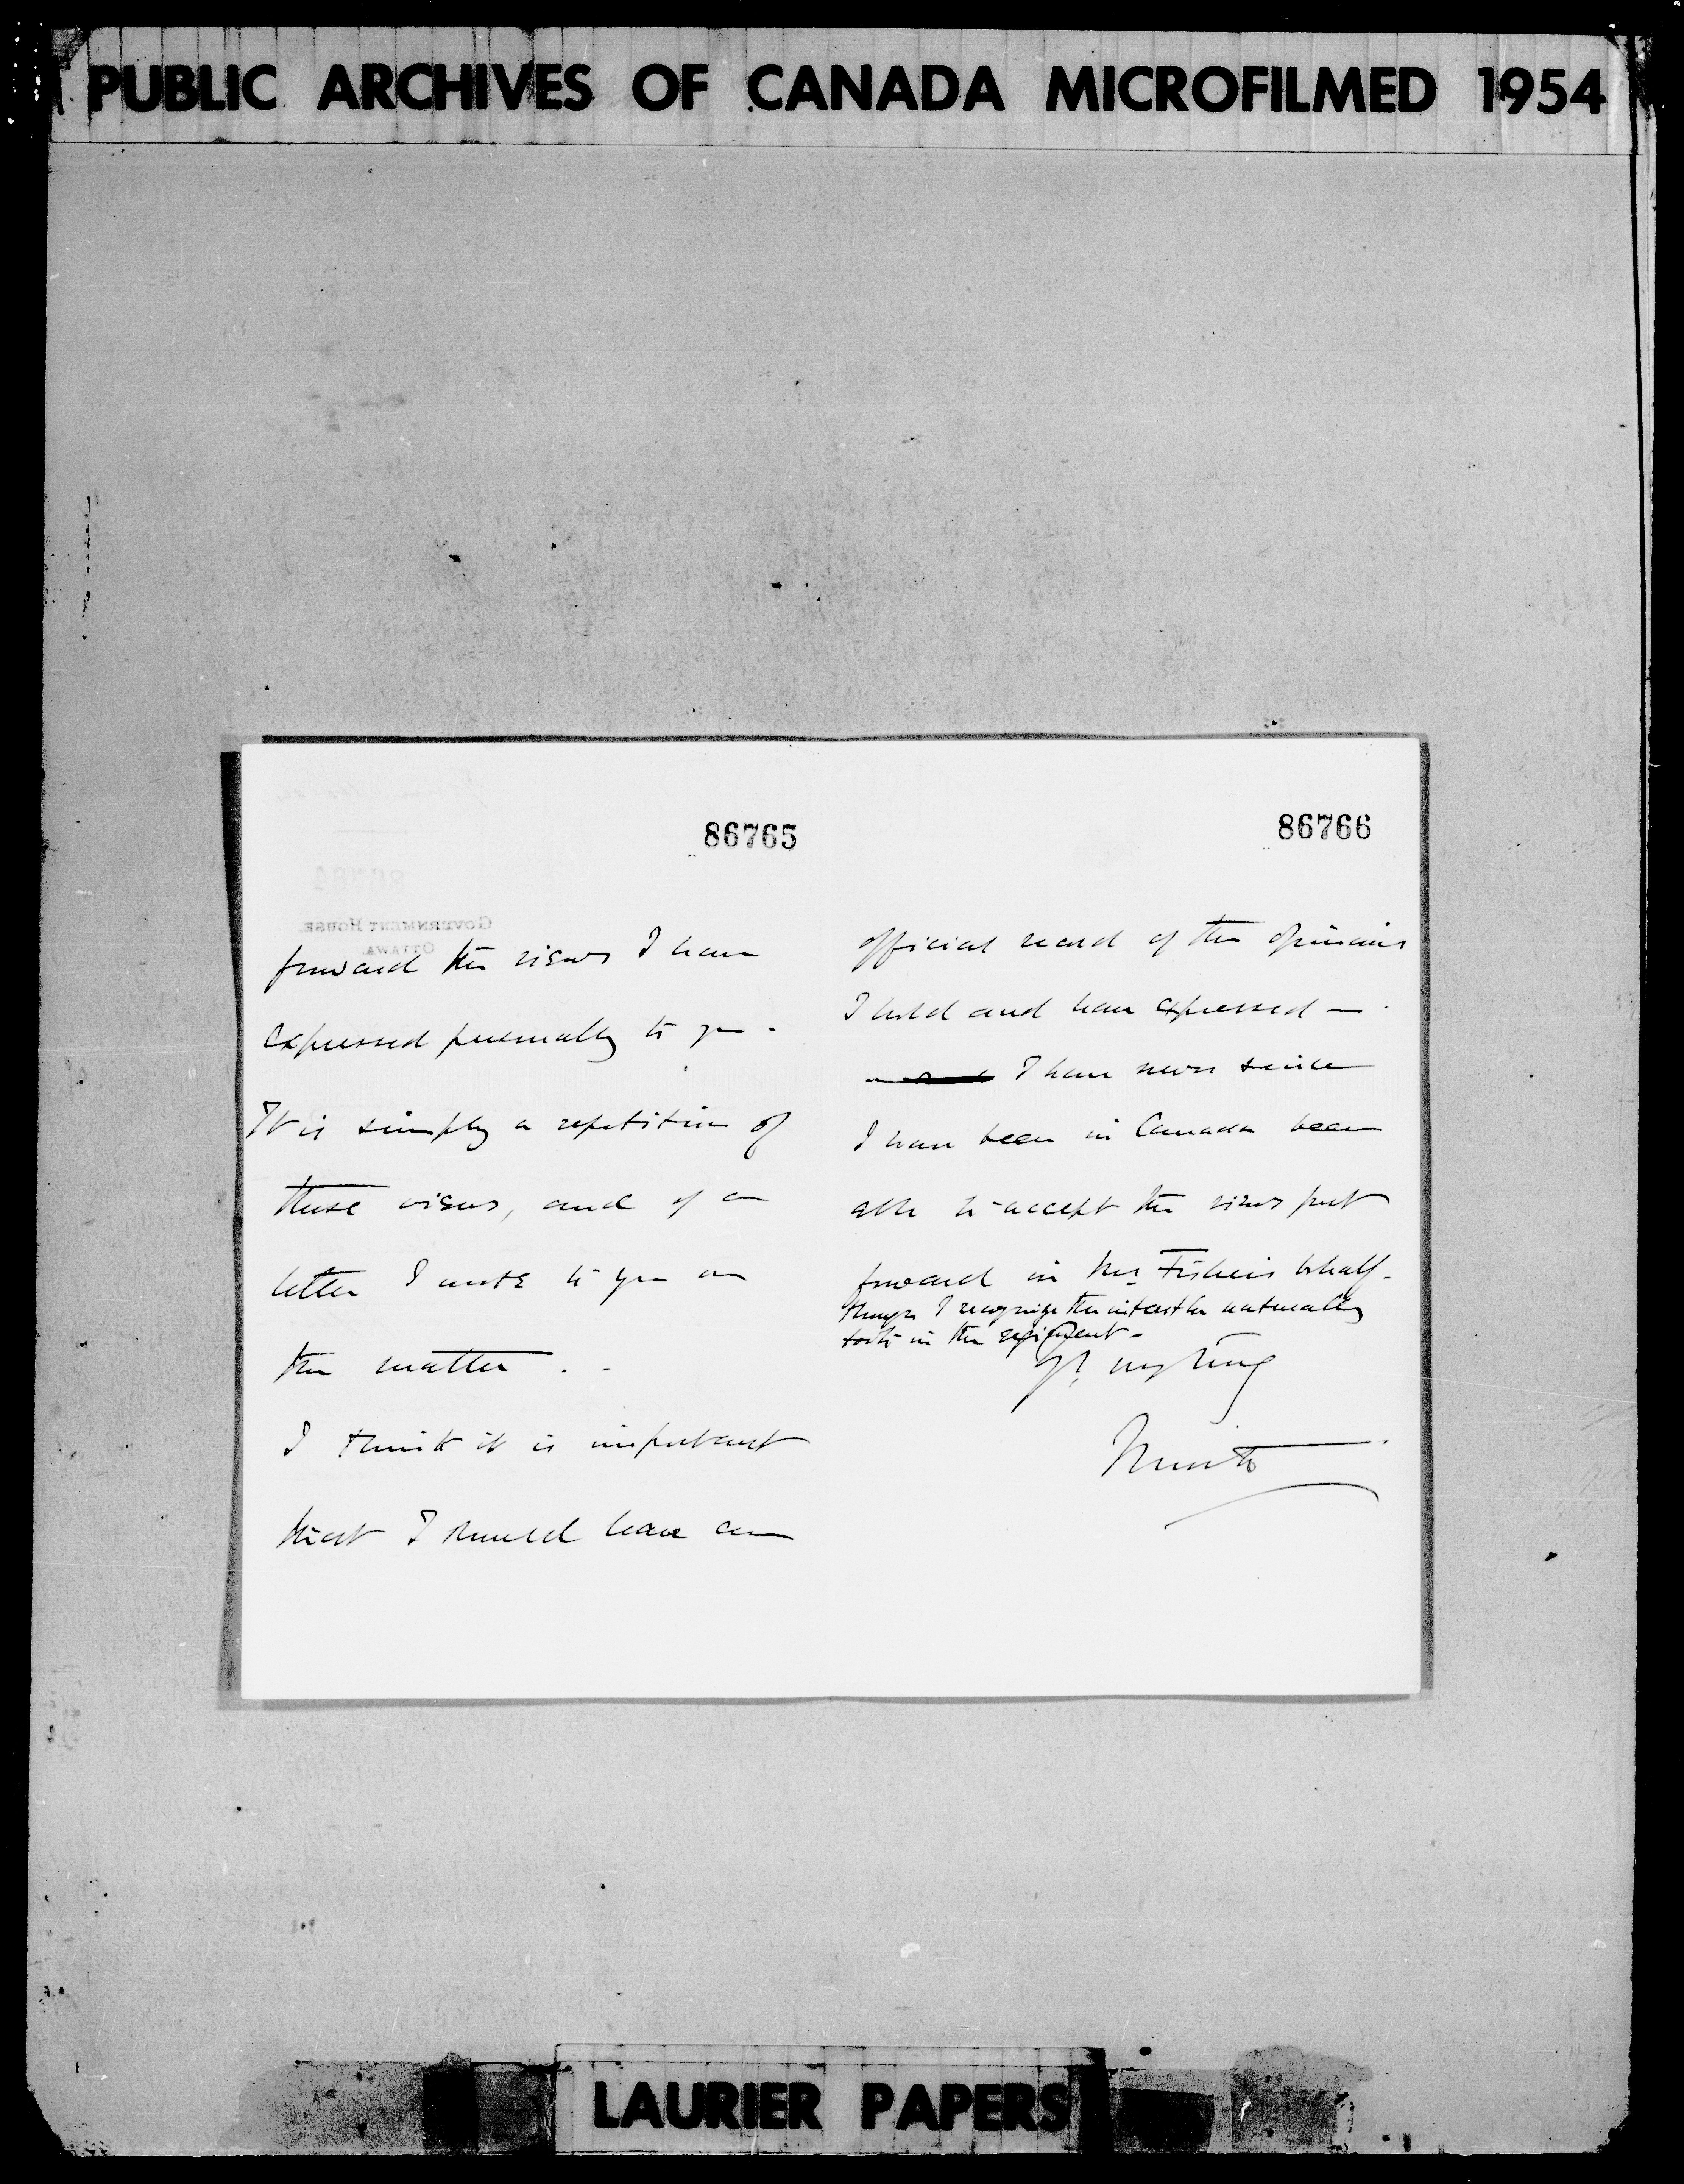 PUBLIC ARCHIVES OF CANADA MICROFILMED 1954
86765
GOVERNMENT HOUSE
OTTAWA
forward the views I have
expressed personally to you -
It is simply a repetition of
these views, and of a
letter I wrote to you on
the matter . -
I think it is important
that I should leave an
86766
official record of the opinions
I hold and have expressed —
I have never since
I have been in Canada been
able to accept the views put
forward in Mr. Fisher's behalf -
though I recognize the interest he naturally
took in the regiment -
Yrs. very truly
Minto
LAURIER PAPERS